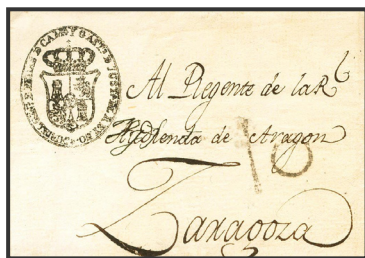 Al Regente de la Rl
Audiencia de Aragon
10
Zaragoza